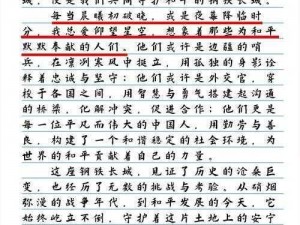 每当晨曦初破晓，或是夜幕降临时
分，我总会仰望星空，想象着那些为和平
默默奉献的人们。他们或许是边疆的哨
兵，在凛冽寒风中挺立，用孤独的身影诠
释着忠诚与坚守；他们或许是外交官，穿
梭于各国之间，用智慧与勇气搭建起沟通
的桥梁，化解冲突，促进合作；他们更是
每一位平凡而伟大的中国人，用勤劳与善
良，构建了一个和谐稳定的社会环境，为
世界的和平贡献着自己的力量。
这座钢铁长城，见证了历史的沧桑巨
变，也经历了无数的挑战与考验。从硝烟
弥漫的战争年代，到和平发展的今天，它
始终屹立不倒，守护着这片土地上的安宁